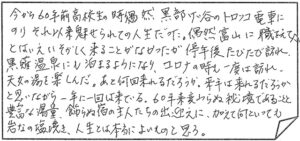 今から60年前高校生の時偶然、黒部峡谷のトロッコ電車に
のり それが来魅せられての人生だった。偶然富山に職を得て
とはいえいそがしく来ることがなかったが停年後たびたび訪れ、
黒薙温泉にも泊まるようになり、コロナの時も一度は訪れ、
天女の湯を楽しんだ。あと何回来れるだろうか、来年は来れるだろうか
と思いながら一年に一回は来ている。60年来変わらぬ秘境であること
豊富な湯量、飾らぬ宿の主人たちの出迎えに、加えて何といっても
岩なの塩焼き、人生とは本当によいものと思う。